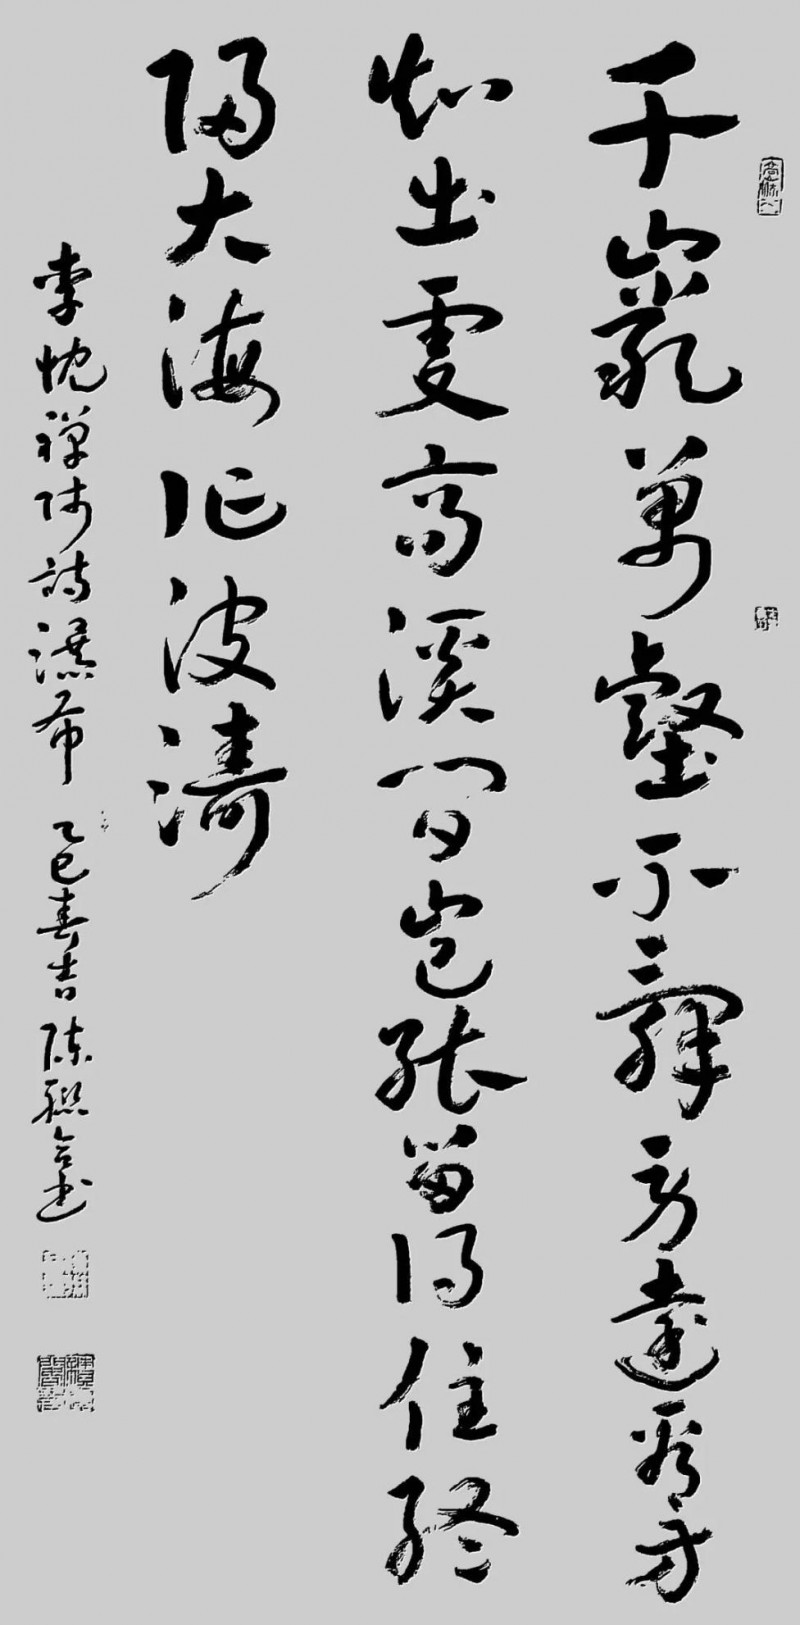 千巖萬壑不辭勞遠看方
知出處高溪澗豈能留得住終
歸大海作波濤
李忱禪師詩瀑布 乙巳春吉 陳聯合書